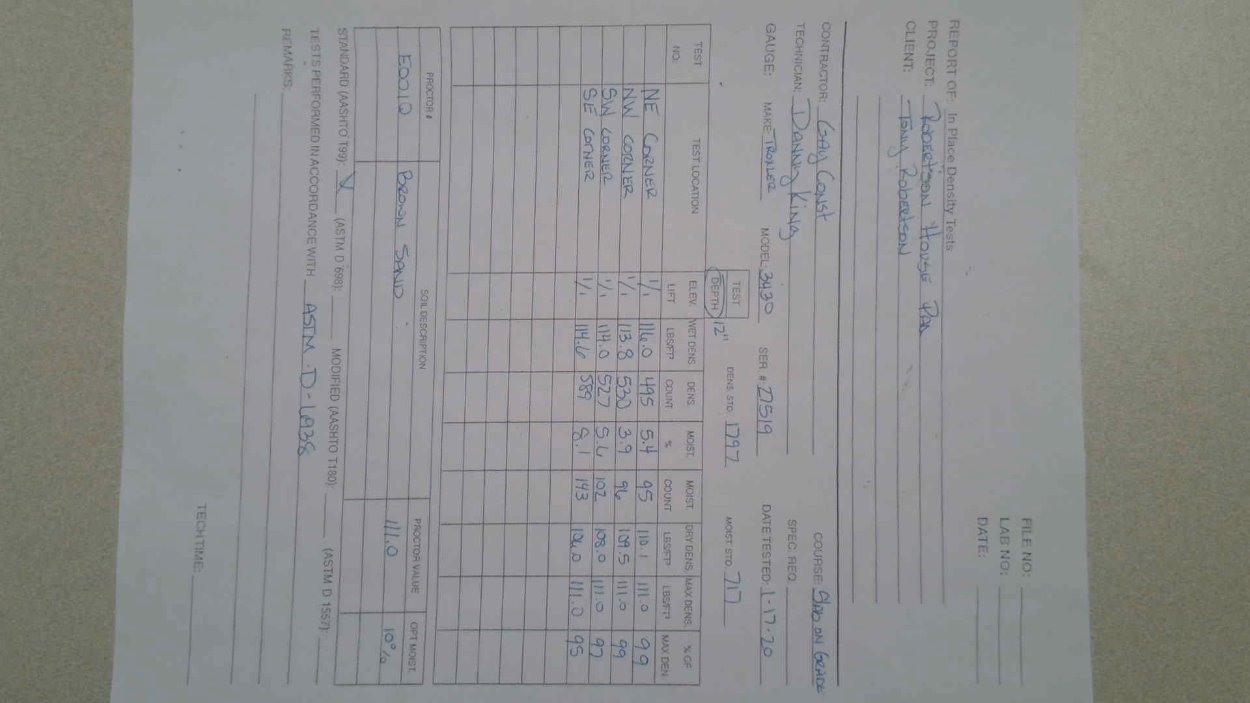 REPORT OF: In Place Density Tests
FILE NO:
PROJECT: Robertson House Pad
LAB NO:
CLIENT: Tony Robertson
DATE:
CONTRACTOR: Gay Const
COURSE: Slab on Grade
TECHNICIAN: Danny King
SPEC. REQ.
GAUGE: MAKE: Troxler MODEL: 3430 SER. # 27519 DATE TESTED: 1-17-20
TEST DEPTH 12" DENS. STD. 1797 MOIST. STD. 717
TEST NO. TEST LOCATION ELEV. LIFT WET DENS LBS/FT³ DENS COUNT MOIST. % MOIST. COUNT DRY DENS. LBS/FT³ MAX DENS. LBS/FT³ % OF MAX DEN.
NE CORNER 1/1 116.0 495 5.4 95 110.1 111.0 99
NW CORNER 1/1 113.8 530 3.9 96 109.5 111.0 99
SW CORNER 1/1 114.0 527 5.6 102 108.0 111.0 97
SE CORNER 1/1 114.6 589 8.1 143 106.0 111.0 95
PROCTOR # SOIL DESCRIPTION PROCTOR VALUE OPT MOIST.
E0012 BROWN SAND 111.0 10%
STANDARD (AASHTO T99): (ASTM D 698): MODIFIED (AASHTO T180): (ASTM D 1557):
TESTS PERFORMED IN ACCORDANCE WITH ASTM-D-6938
REMARKS:
TECH TIME: